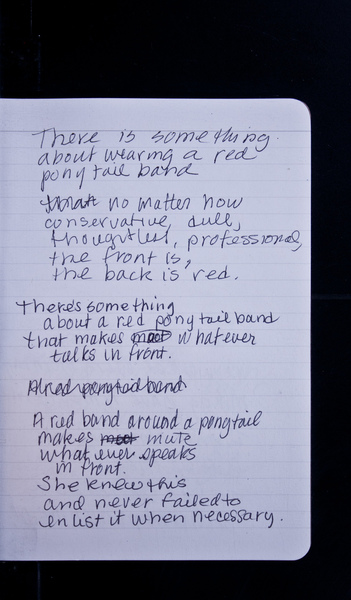 There is something
about wearing a red
pony tail band
that no matter how
conservative, dull,
thoughtless, professional,
the front is,
the back is red.
There's something
about a red pony tail band
that makes moot whatever
talks in front.
A red pongtail band
A red band around a pongtail
makes moot mute
what ever speaks
in front.
She knew this
and never failed to
enlist it when necessary.